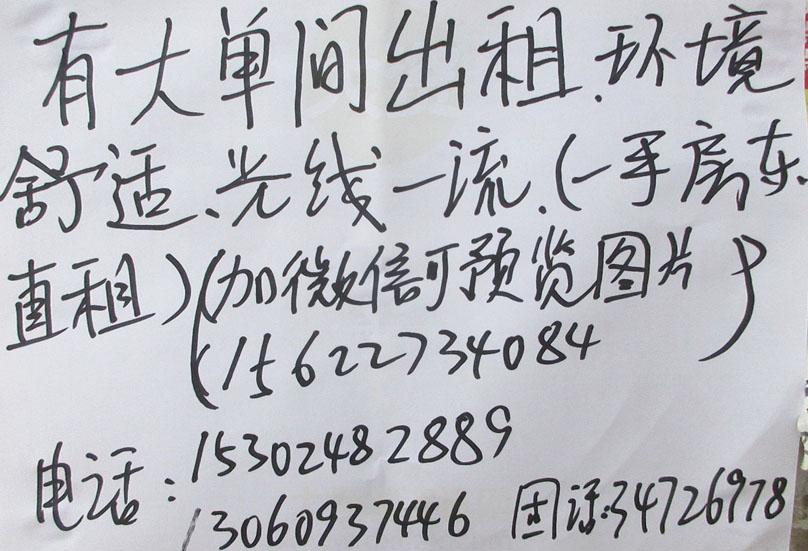 有大单间出租.环境
舒适、光线一流.(一手房东.
直租)(加微信可预览图片)
(15622734084
电话:15302482889
13060937446 固话:34726978